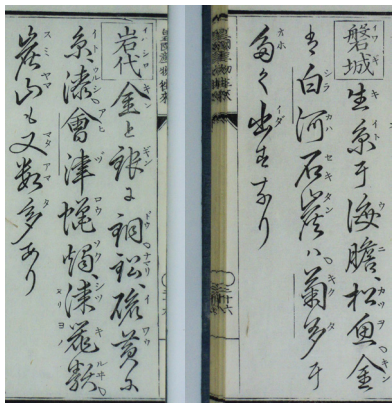 磐城 生糸于海膽松魚金
は白河石炭ハ菊多于
多く出すなり
岩代 金と銀に銅鉛硫黄に
糸漆會津蝋燭漆器類
炭山も又数多あり